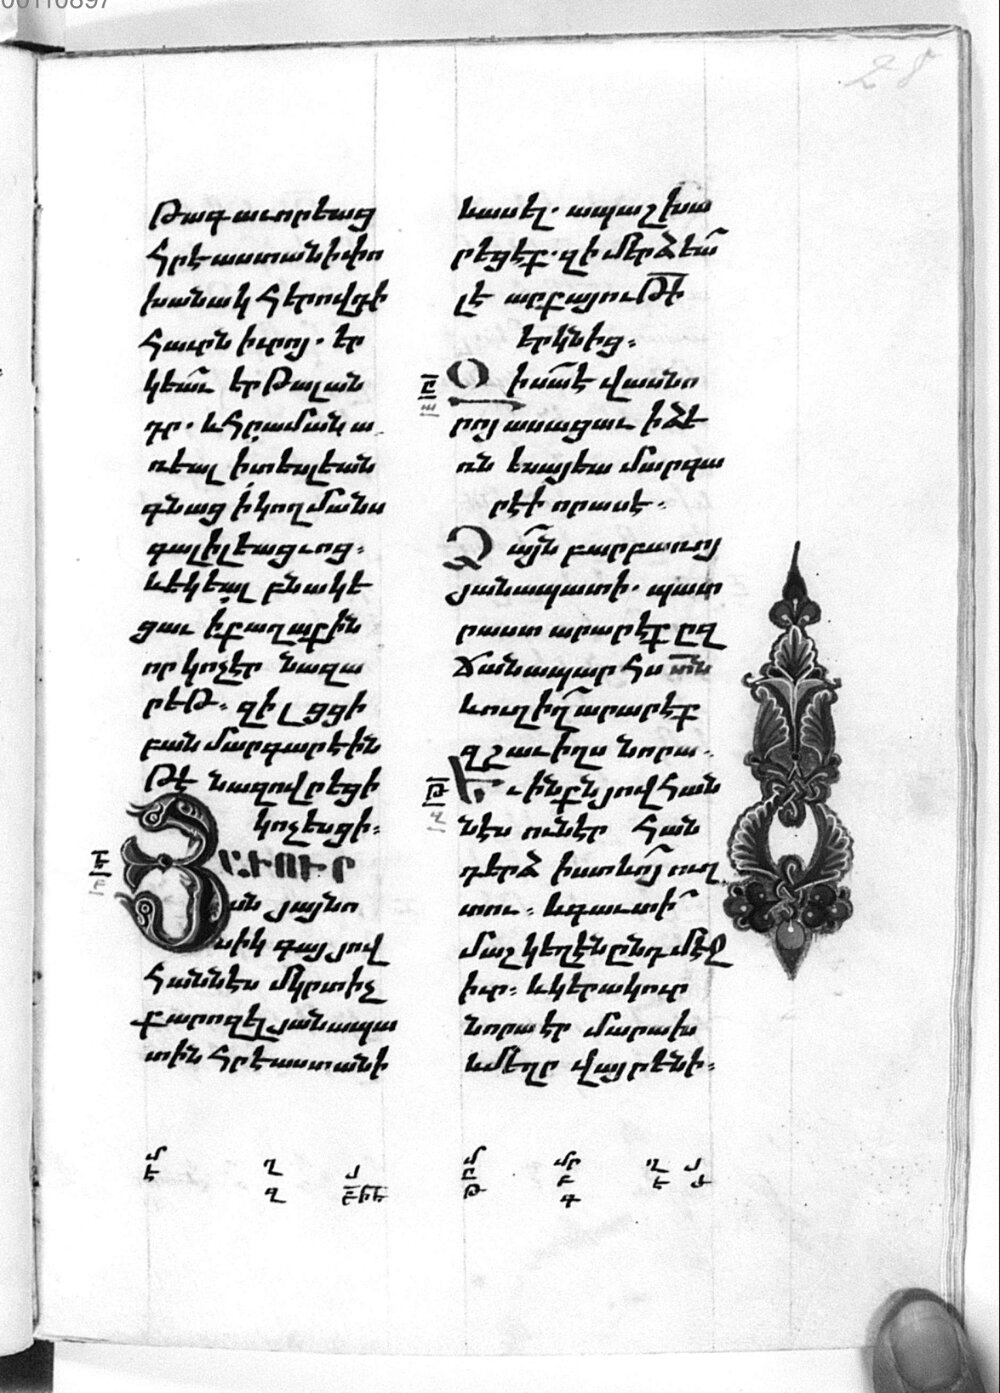 00110897
28
Թագաւորեաց
Հրէաստանի փո
խանակ Հերովդի
Հաւրն իւրոյ. եր
կեաւ երթալ ան
դր. և Հրաման ա
ռեալ ի տեսլեան
գնաց ի կողմանս
գալիլեացւոց:
և եկեալ բնակե
ցաւ ի քաղաքին
որ կոչէր նազա
րեթ. զի լցցի
բան մարգարէին
թէ նազովրեցի
կոչեսցի:
Յաւուրս
ն յայնո
սիկ գայ յով
Հաննէս մկրտիչ
քարոզել յանապա
տին Հրէաստանի
և ասել. ապաշխա
րեցէք. զի մերձեա
լ է արքայութի
երկնից:
Զի սա է վասն ո
րոյ ասացաւ ի ձե
ռն եսայեա մարգա
րէի որ ասէ.
Ձայն բարբառոյ
յանապատի. պատ
րաստ արարէք ըզ
ճանապարՀս տն
և ուղիղ արարէք
զշաւիղս նորա.
Եւ ինքն յովՀան
նէս ունէր Հան
դերձ ի ստևոյ ուղ
տու. և գաւտի
մաշկեղէն ընդ մէջ
իւր. և կերակուր
նորա էր մարախ
և մեղր վայրենի: